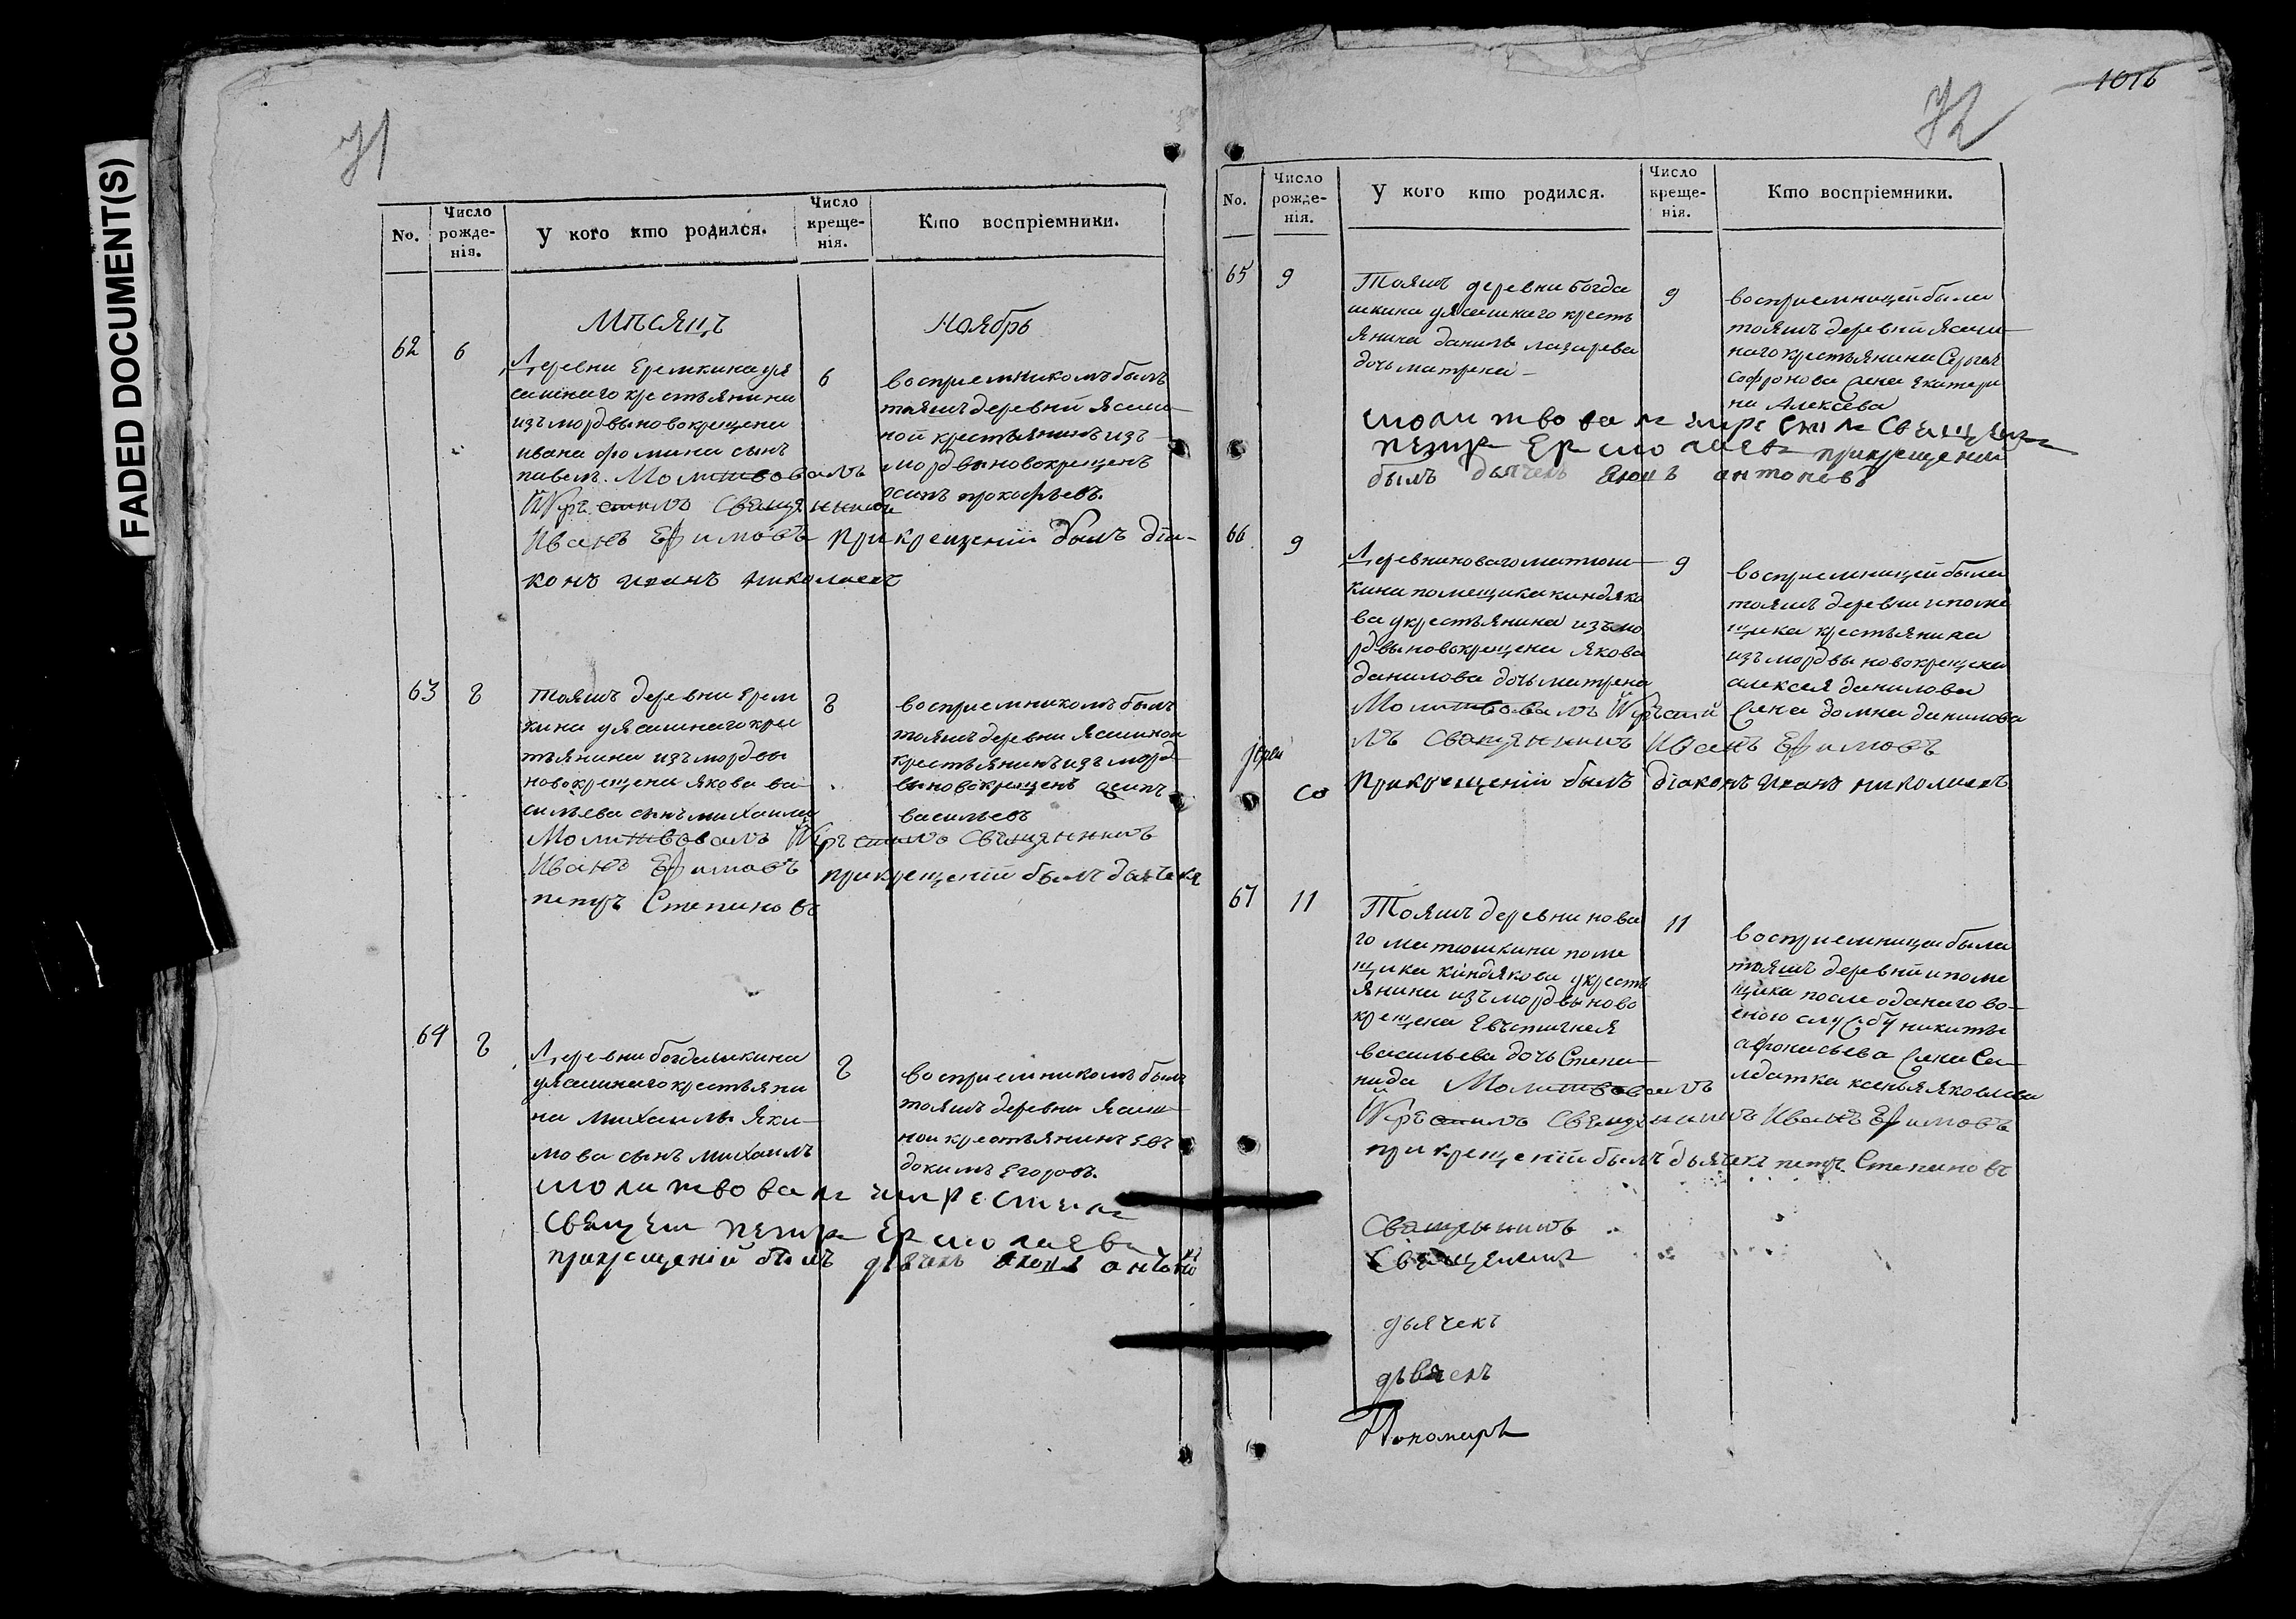 FADED DOCUMENT(S)
71
No.
Число рожде-
нія.
У кого кто родился.
Число креще-
нія.
Кто воспріемники.
Мѣсяцъ Ноябрь
62 6
Деревни Еремкина уя
сашнаго крестьянина
изъ мордвы новокрещена
ивана фомина сынъ
павелъ. Молитвовалъ
Икрѣстилъ Свящянникъ
Иванъ Ефимовъ при крещеніи былъ дїа-
конъ иванъ николаевъ
6
восприемникомъ былъ
тояжъ деревни ясаш-
ной крестьянинъ изъ
мордвы новокрещенъ
осипъ прокофьевъ.
63 8
тояжъ деревни Ерем
кина уясашнаго крес
тьянина изъ мордвы
новокрещена якова ва
сильева сынъ михаила
Молитвовалъ Икрѣстилъ Свящянникъ
Иванъ Ефимовъ при крещеніи былъ дьячекъ
петръ Степановъ
8
восприемникомъ былъ
тояжъ деревни ясашной
крестьянинъ изъ морд
вы новокрещенъ осипъ
васильевъ
64 8
Деревни богдашкина
уясашнаго крестьяни
на михаила Яки-
мова сынъ михаилъ
молитвовалъ икрестилъ
священ петръ Ермолаевъ
прикрещеніи былъ дьвчекъ
8
восприемникомъ былъ
тояжъ деревни ясаш-
ной крестьянинъ Ев
докимъ Егоровъ.
72
1016
No.
Число рожде-
нія.
У кого кто родился.
Число креще-
нія.
Кто воспріемники.
65 9
Тояжъ деревни богда
шкина уясашнаго кресть
янина данила лазарева
дочь матрена
молитвовалъ икрестилъ священ
петръ Ермолаевъ прикрещеніи
былъ дьячекъ антоновъ
9
восприемницей была
тояжъ деревни ясаш-
наго крестьянина Сергея
софронова жена екатери
на Алексева
66 9
Деревни новаго матюш-
кина помещика киндяко
ва укрестьянина изъ мо
рдвы новокрещена якова
данилова дочь матрена
Молитвовалъ Икрѣсти
лъ Свящянникъ Иванъ Ефимовъ
Прикрещеніи былъ діаконъ иванъ николаевъ
9
восприемницей была
тояжъ деревни ипоме
щика крестьянина
изъ мордвы новокрещена
алексея данилова
жена домна данилова
Іерей
со
67 11
Тояжъ деревни нова
го матюшкина поме
щика киндякова укресть
янина изъ мордвы ново
крещена Евъстигнея
васильева дочь Степа-
нида Молитвовалъ
Икрѣстилъ Свящянникъ Иванъ Ефимовъ
при крещеніи былъ дьячекъ петръ Степановъ
11
восприемницей была
тояжъ деревни ипоме
щика после оданаго во-
еною службу никиты
афонасьева жена Са-
лдатка ксенья яковлева
Священникъ
Священникъ
дьячекъ
дьвчекъ
Пономарь